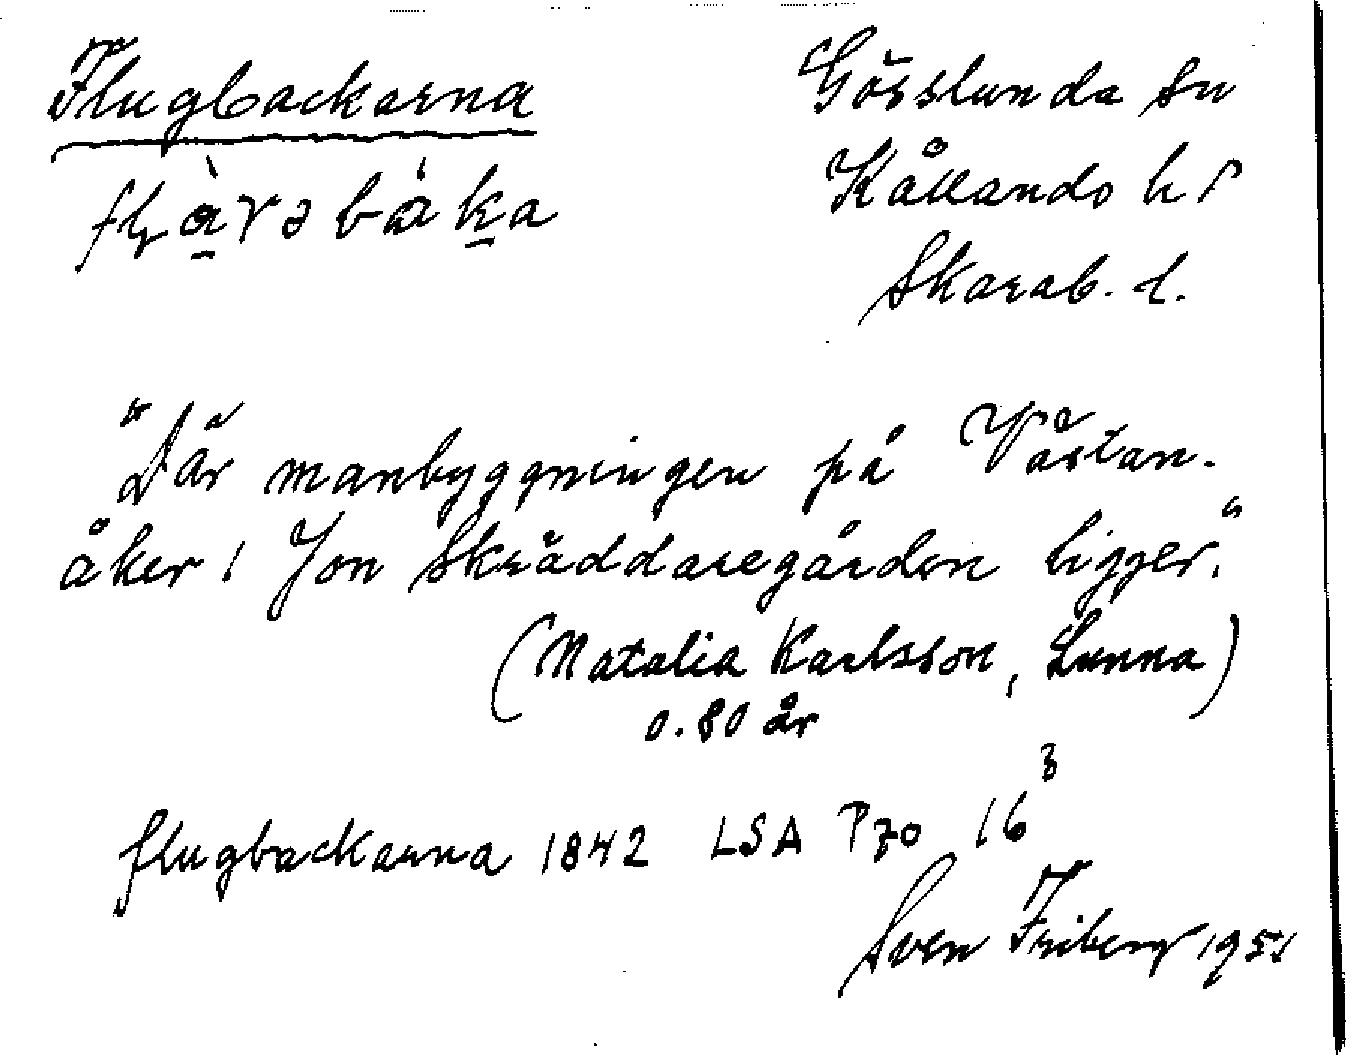 Flugbackarna
Gösslunda sn
Kållands hd
Skarab. l.
"Där manbyggningen på Västan-
åker i Jon Skräddaregården ligger."
(Natalia Karlsson, Lunna)
o. 80 år
flugbackarna 1842 LSA P70 16³
Sven Friberg 1951